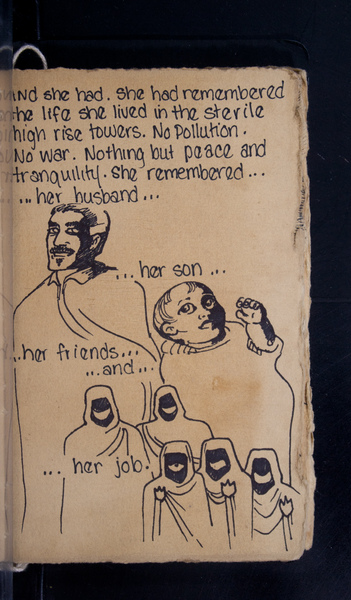 and she had. She had remembered
the life she lived in the sterile
high rise towers. No Pollution.
No war. Nothing but peace and
tranquility. She remembered...
...her husband...
...her son...
...her friends...
...and...
...her job.